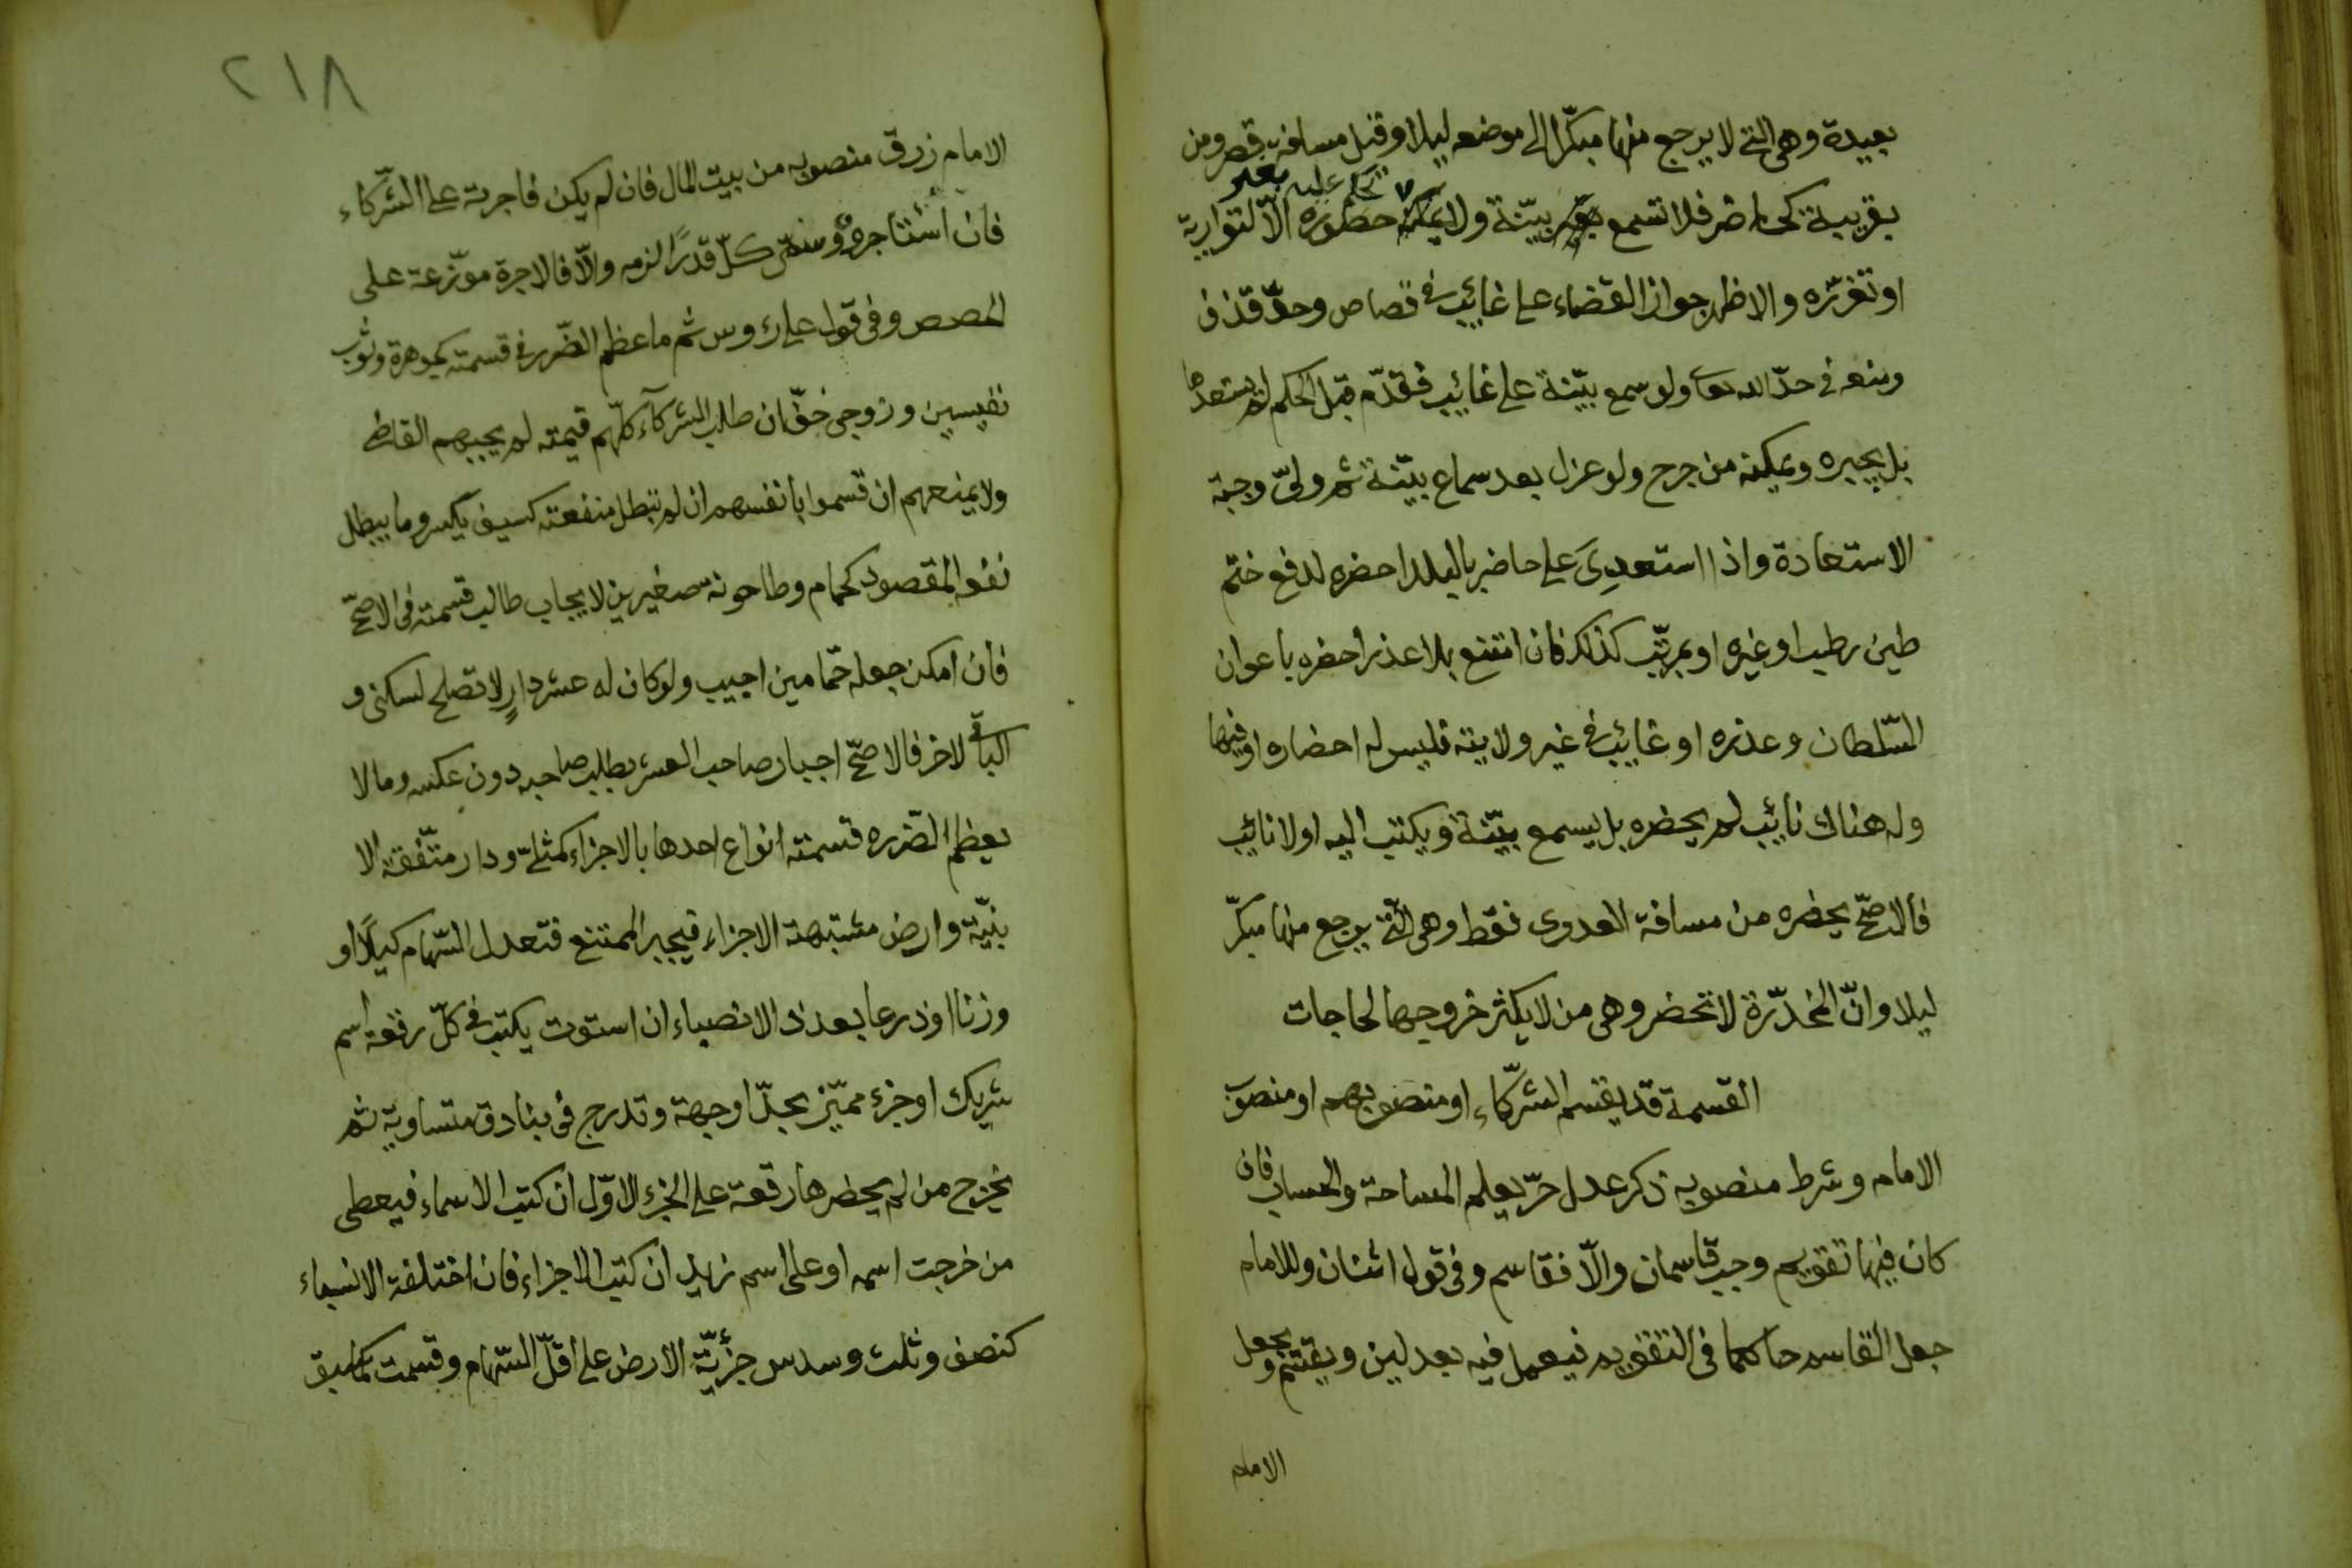 بعيدة وهي التي لا يرجع منها مبكّرا الى موضعه ليلا وقيل مسافة قصر ومن
بقريبة كحاضر فلا تسمع بيّنة ولا يحكم عليه بغير حضوره الّا لتواريه
او تعزّزه والاظهر جواز القضاء على غائب في قصاص وحدّ قذف
ومنعه في حدّ الله تعالى ولو سمع بيّنة على غائب فقدم قبل الحكم لم يستعدها
بل يخبره ويمكنه من جرح ولو عزل بعد سماع بيّنة ثم ولّي وجبت
الاستعادة واذا استعدِيَ على حاضر بالبلد احضره لدفع ختم
طين رطب او غيره او بمرتّب كذلك فان امتنع بلا عذر احضره باعوان
السّلطان وعذره او غائب في غير ولايته فليس له احضاره او فيها
وله هناك نائب لم يحضره بل يسمع بيّنة ويكتب اليه او لا نائب
فالاصحّ يحضره من مسافة العدوى فقط وهي الّتي يرجع منها مبكّر
ليلا وانّ المخدّرة لا تحضر وهي من لا يكثر خروجها لحاجات
القسمة قد يقسم الشركّاء او منصوبهم او منصوب
الامام وشرط منصوبه ذكر عدل حرّ يعلم المساحة والحساب فان
كان فيها تقويم وجب قاسمان والّا فقاسم وفي قول اثنان وللامام
جعل القاسم حاكما في التقويم فيعمل فيه بعدلين ويقسم ويجعل
الامام
٢١٨
الامام رزق منصوبه من بيت المال فان لم يكن فاجرته على الشّركاء
فان استأجروه وسمّى كلّ قدرًا لزمه والّا فالاجرة موزّعة على
الحصص وفي قول على الرءوس ثم ما عظم الضّرر في قسمته كجوهرة وثوب
نفيسين وزوجي خفّ ان طلب الشركآء كلّهم قيمته لم يجبهم القاضي
ولا يمنعهم ان قسموا بانفسهم ان لم تبطل منفعته كسيف يكسر وما يبطل
نفعه المقصود كحمام وطاحونة صغيرين لا يجاب طالب قسمته في الاصحّ
فان امكن جعله حمّامين اجيب ولو كان له عشر دارٍ لا تصلح لسكنى و
الباقي لاخر فالاصحّ اجبار صاحب العشر بطلب صاحبه دون عكسه وما لا
يعظم الضّرره قسمته انواع احدها بالاجزاء كمثليّ ودار متّفقة الا
بنيّة وارض مشتبهة الاجزاء فيجبر الممتنع فتعدل السّهام كيلًا او
وزنا او ذرعا بعدد الانصباء ان استوت يكتب في كلّ رقعة اسم
شريك او جزء مميّز بحدّ او جهة وتدرج في بنادق متساوية ثم
يخرج من لم يحضرها رقعة على الجزء الاوّل ان كتب الاسماء فيعطى
من خرجت اسمه او على اسم زيد ان كتب الاجزاء فان اختلفة الانصباء
كنصف وثلث وسدس جزّئت الارض على اقلّ السّهام وقسمت كما سبق